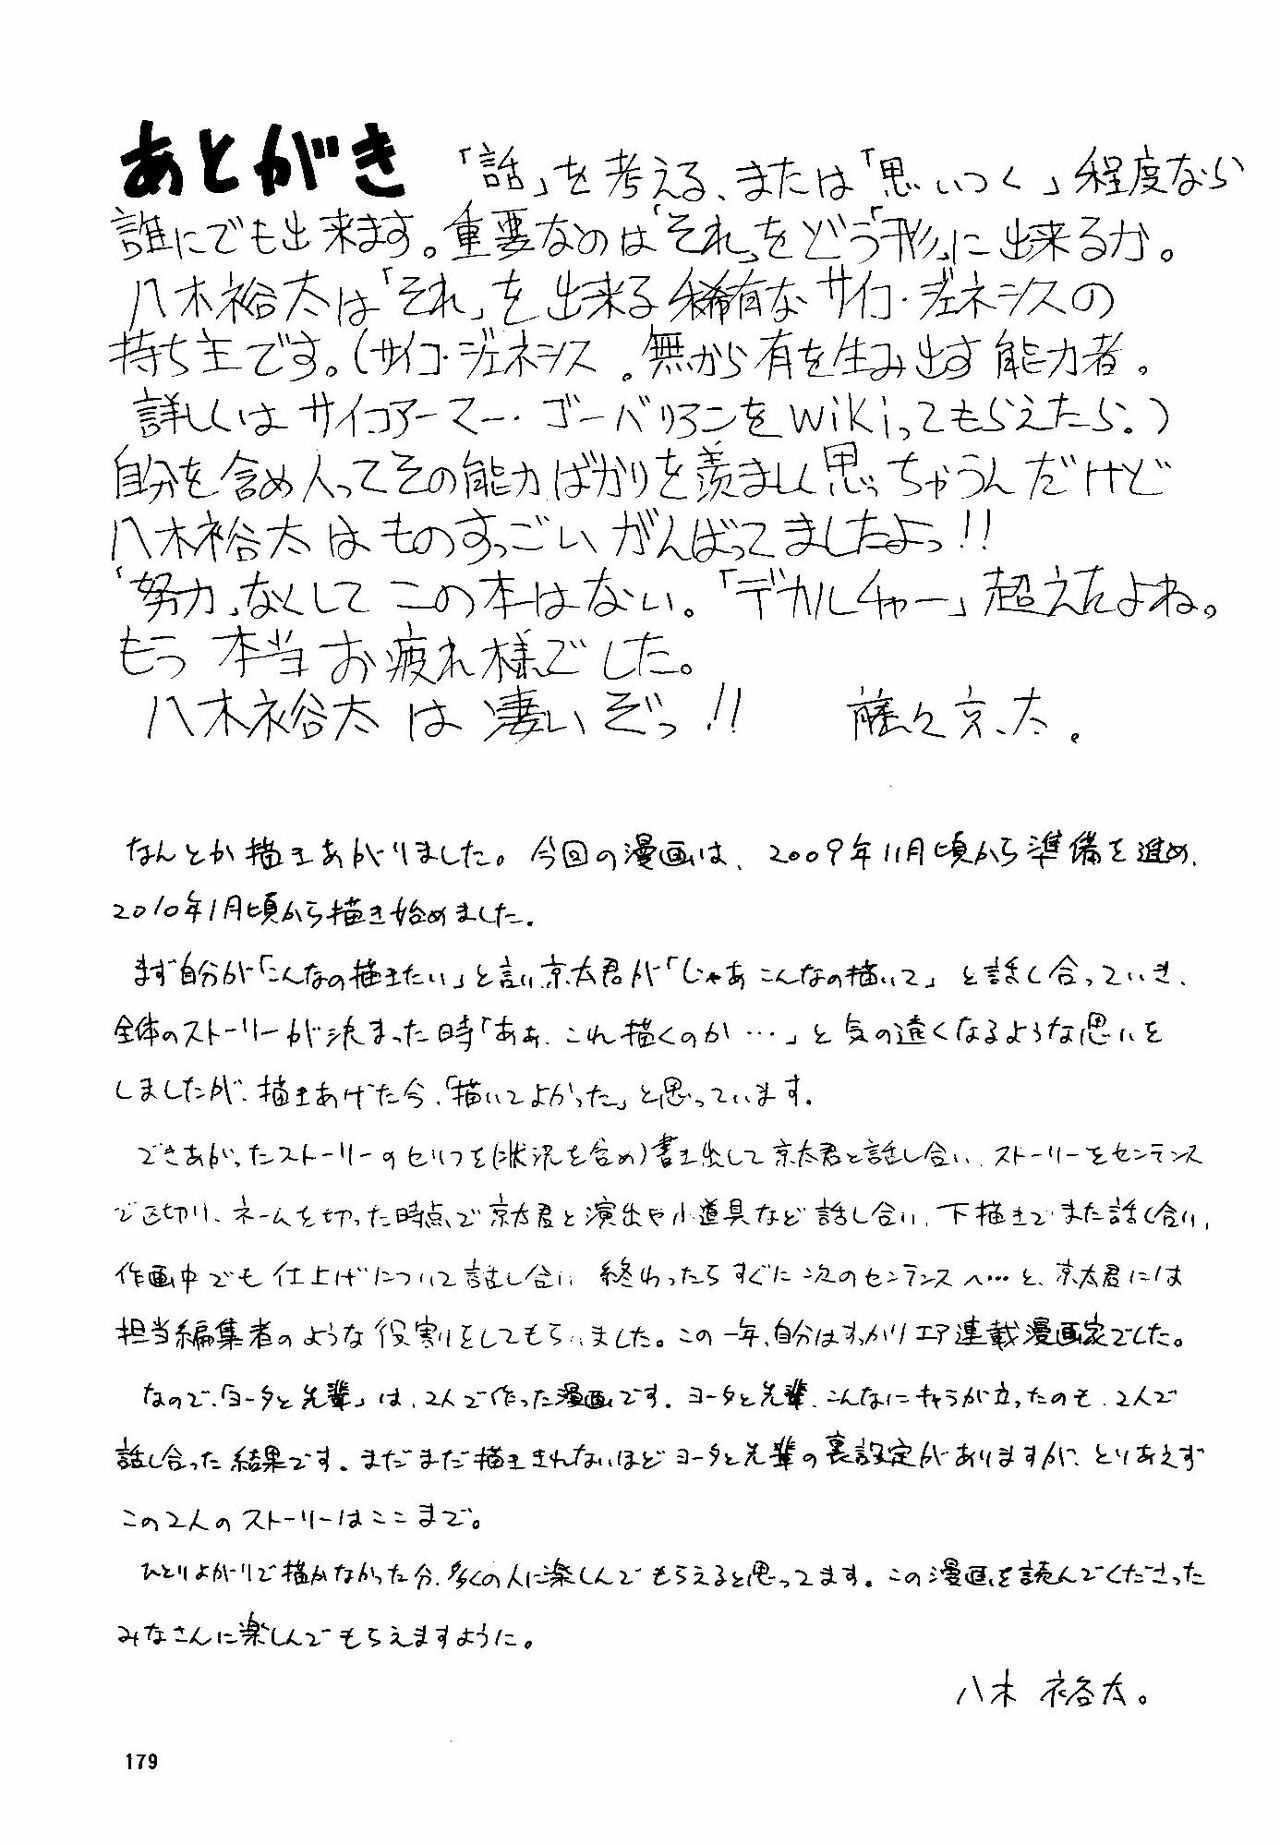 あとがき 「話」を考える、または「思いつく」程度なら
誰にでも出来ます。重要なのは「それ」をどう「形」に出来るか。
八木裕太は「それ」を出来る稀有なサイコ・ジェネシスの
持ち主です。(サイコ・ジェネシス。無から有を生み出す能力者。
詳しくはサイコアーマー・ゴーバリアンをwikiってもらえたら。)
自分を含め人ってその能力ばかりを羨ましく思っちゃうんだけど
八木裕太はものすっごいがんばってましたよっ!!
「努力」なくしてこの本はない。「デカルチャー」超えたよね。
もう本当お疲れ様でした。
八木裕太は凄いぞっ!! 藤久京太。
なんとか描きあがりました。今回の漫画は、2009年11月頃から準備を進め、
2010年1月頃から描き始めました。
まず自分が「こんなの描きたい」と言い京太君が「じゃあこんなの描いて」と話し合っていき、
全体のストーリーが決まった時「ああ、これ描くのか…」と気の遠くなるような思いを
しましたが、描きあげた今、「描いてよかった」と思っています。
できあがったストーリーのセリフを(状況を含め)書き出して京太君と話し合い、ストーリーをセンテンス
で区切り、ネームを切った時点で京太君と演出や小道具など話し合い、下描きでまた話し合い、
作画中でも仕上げについて話し合い 終わったらすぐに次のセンテンスへ…と、京太君には
担当編集者のような役割をしてもらいました。この一年、自分はすっかりエア連載漫画家でした。
なので、「ヨータと先輩」は、2人で作った漫画です。ヨータと先輩、こんなにキャラが立ったのも、2人で
話し合った結果です。まだまだ描ききれないほどヨータと先輩の裏設定がありますが、とりあえず
この2人のストーリーはここまで。
ひとりよがりで描かなかった分、多くの人に楽しんでもらえると思ってます。この漫画を読んでくださった
みなさんに楽しんでもらえますように。
八木 裕太。
179